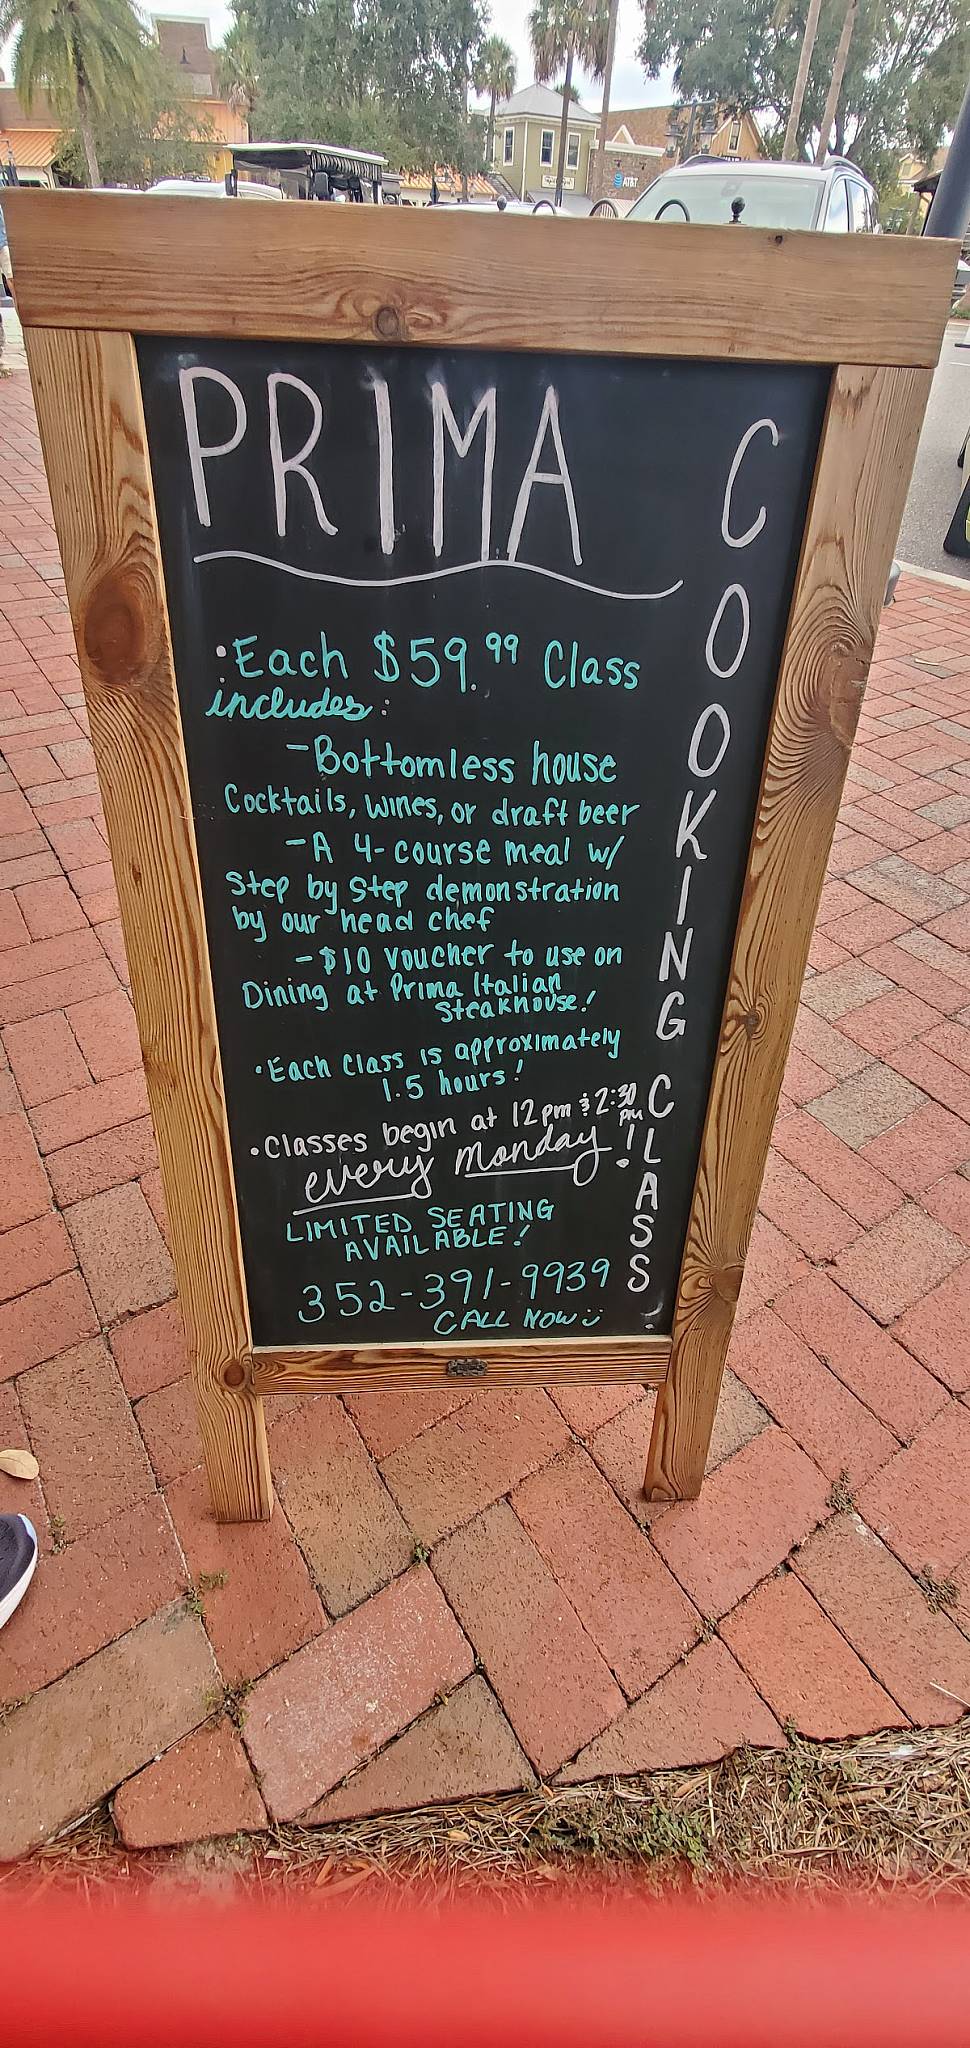 AT&T
PRIMA
COOKING CLASS!
•Each $59.99 Class
includes:
-Bottomless house
Cocktails, wines, or draft beer
-A 4-course meal w/
Step by Step demonstration
by our head chef
-$10 voucher to use on
Dining at Prima Italian
Steakhouse!
•Each Class is approximately
1.5 hours!
•Classes begin at 12pm & 2:30 pm
every Monday!
LIMITED SEATING
AVAILABLE!
352-391-9939
CALL NOW :)